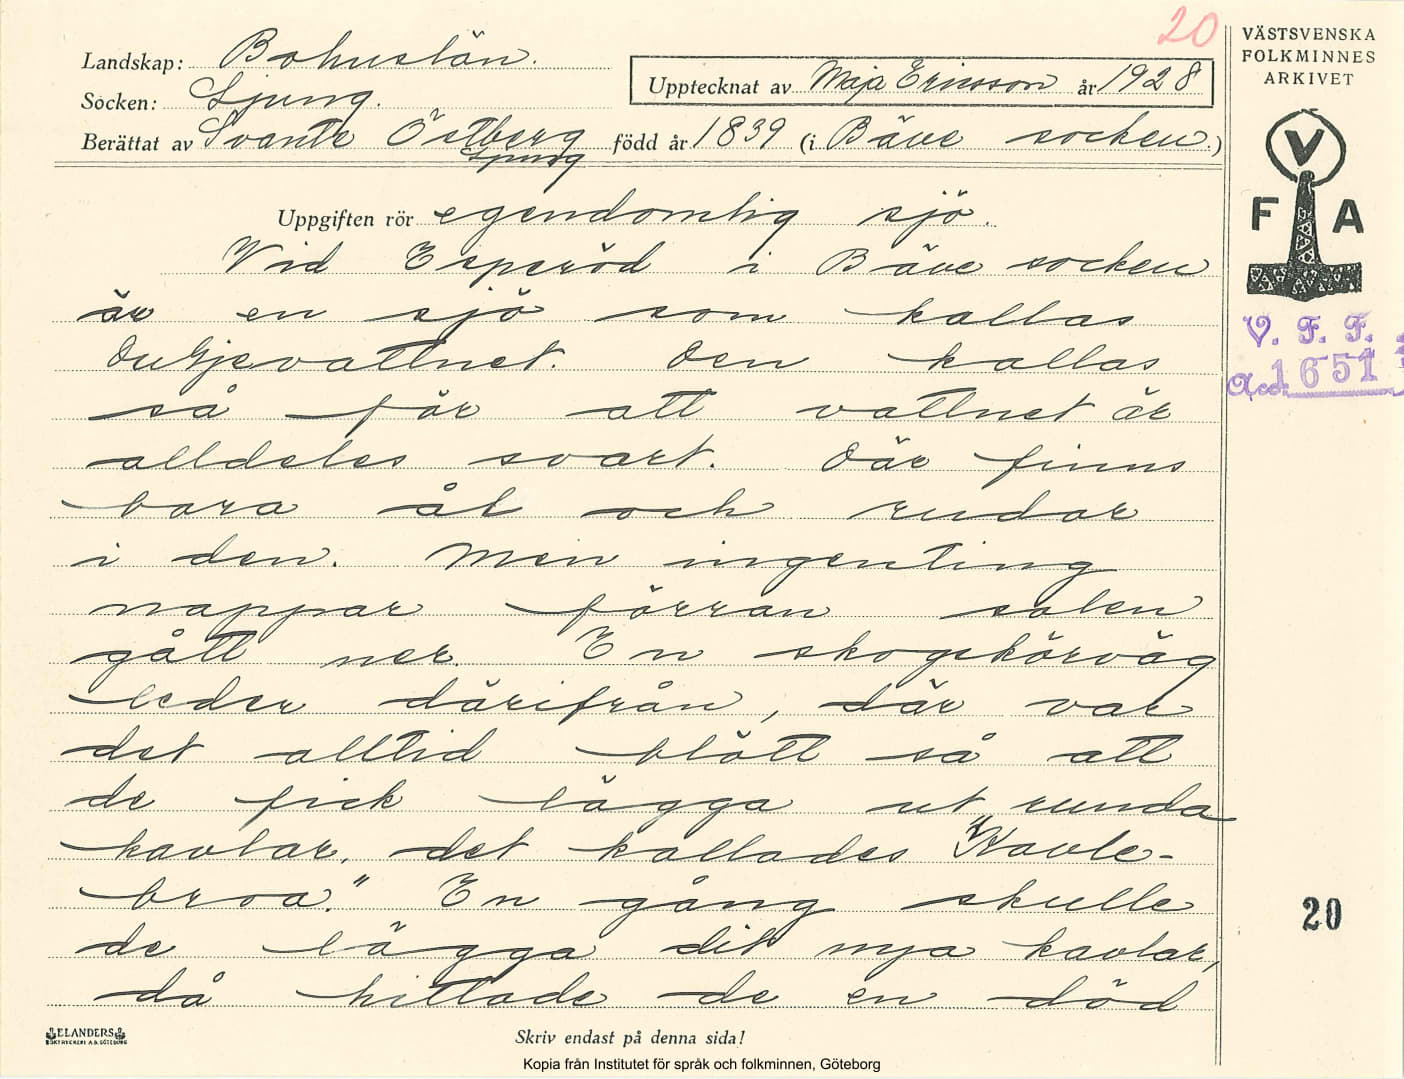 20
VÄSTSVENSKA
FOLKMINNES
ARKIVET
Landskap: Bohuslän.
Socken: Ljung.
Upptecknat av Maja Ericsson år 1928
Berättat av Svante Östberg född år 1839 (i Bäve socken.)
Ljung
Uppgiften rör egendomlig sjö.
V
F A
Vid Esperöd i Bäve socken
är en sjö som kallas
Den kallas
så för att vattnet är
alldeles svart. Där finns
bara ål och rudor
i den. Men ingenting
nappar förrän solen
gått ner. En skogskörväg
leder därifrån, där var
det alltid blött så att
de fick lägga ut runda
kavlar, det kallades "Kavle-
broa." En gång skulle
de lägga dit nya kavlar,
då hittade de en död
V. F. F.
Acc. 1651
20
ELANDERS
BOKTRYCKERI A.B. GÖTEBORG
Skriv endast på denna sida!
Kopia från Institutet för språk och folkminnen, Göteborg